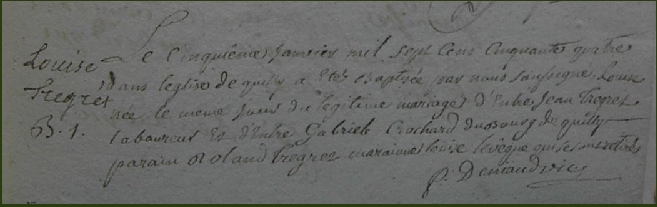 Louise
Tregret
B. 1.
Le cinquième janvier mil sept cens cinquante quatre
dans leglise de quilly a été baptisée par nous soussigné Louise
née le meme jour du légitime mariage d'entre Jean Tregret
laboureur et d'entre Gabriele Crochard du bourg de quilly
parain Roland Tregret maraine Louise levêque qui ne
p. Deniaud vic